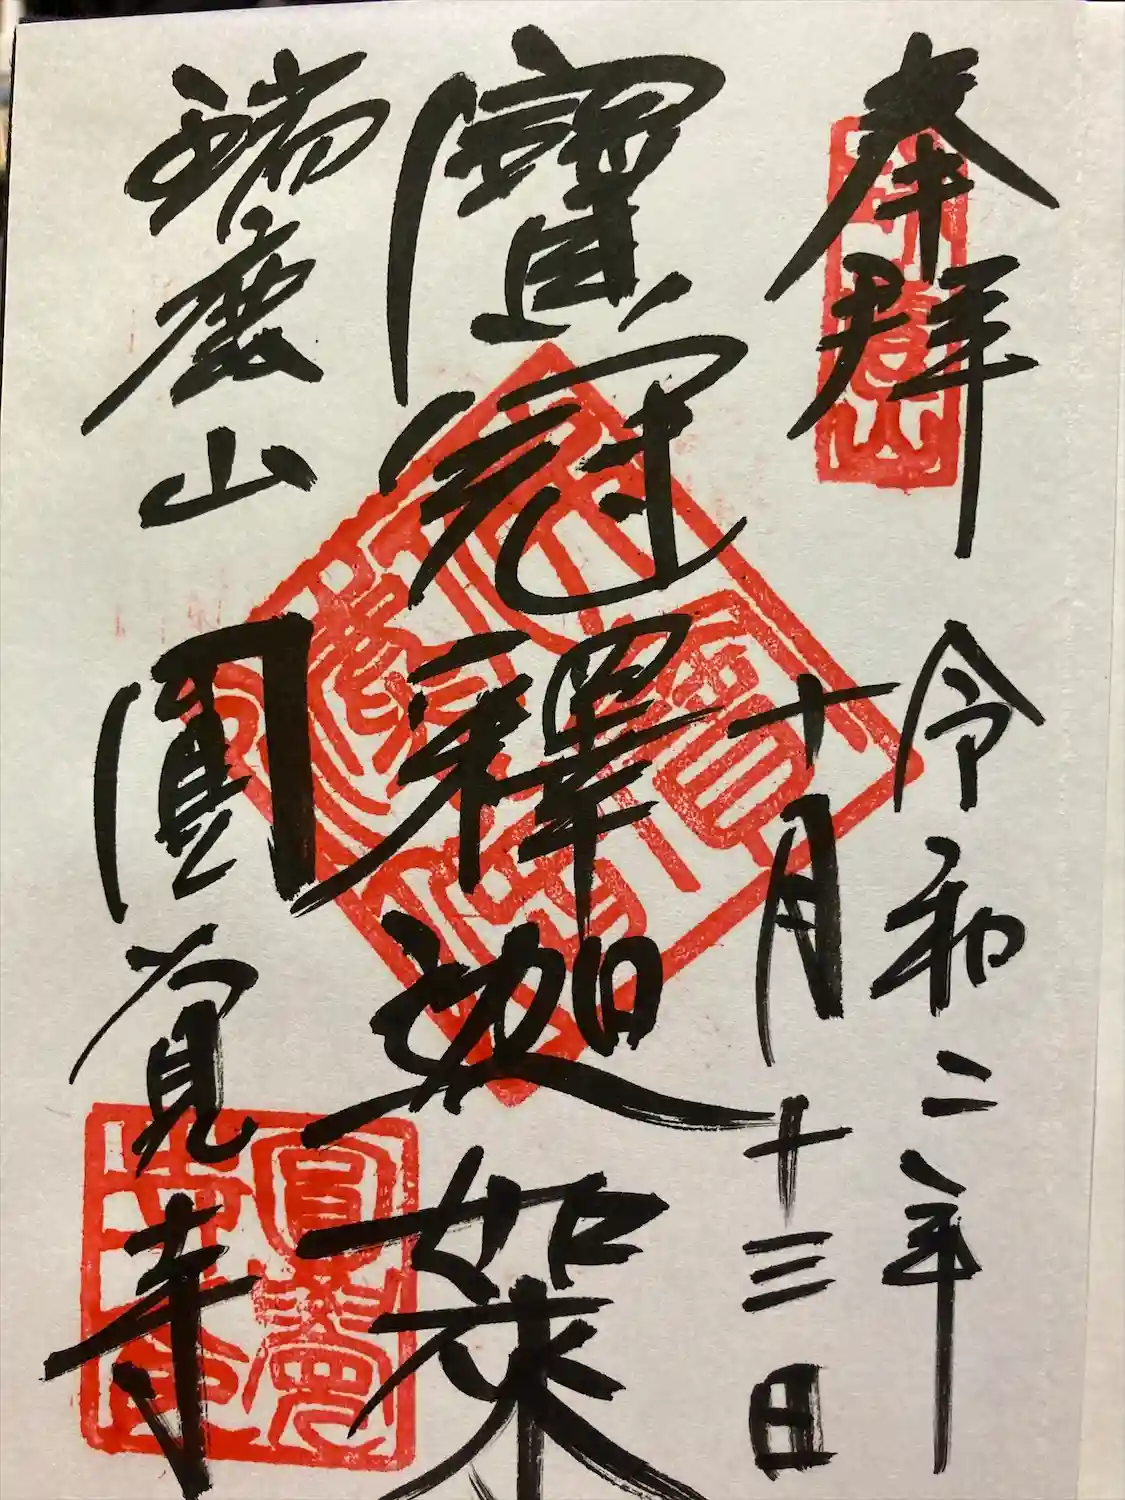 奉拝
令和二年
十月十三日
寳冠釋迦如来
瑞鹿山
圓覺寺